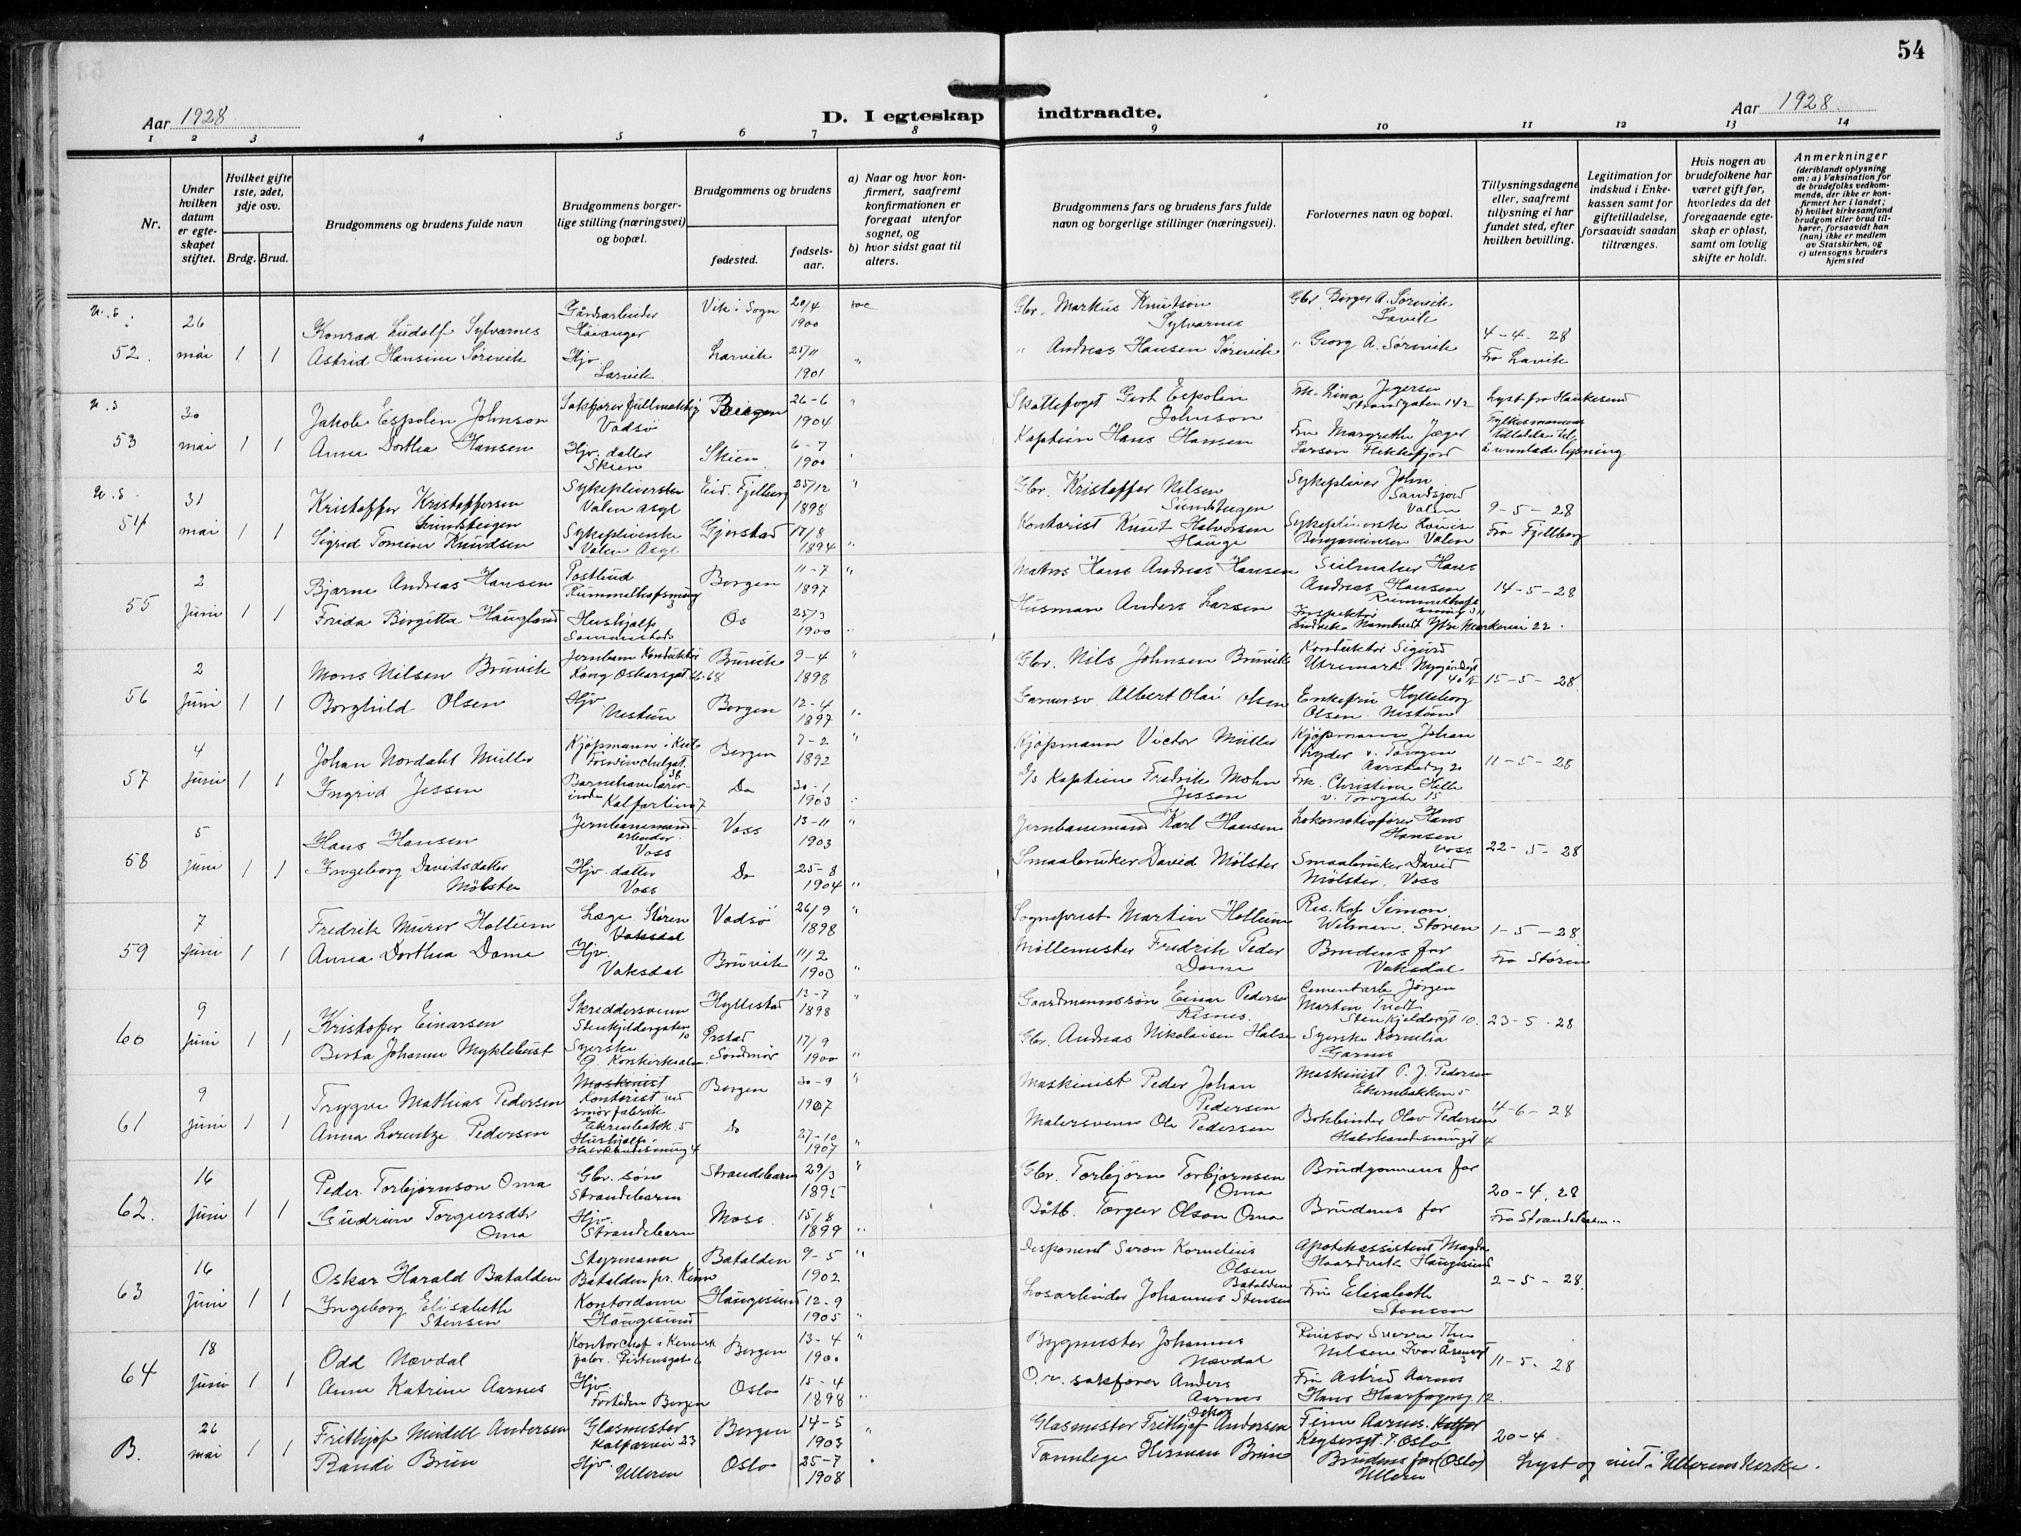 54
Aar 1928
D. I egteskap indtraadte.
Aar 1928
1 2 3 4 5 6 7 8 9 10 11 12 13 14
Nr.
Under hvilken datum er egteskapet stiftet.
Hvilket gifte 1ste, 2det, 3dje osv.
Brdg. Brud.
Brudgommens og brudens fulde navn
Brudgommens borgerlige stilling (næringsvei) og bopæl.
Brudgommens og brudens
fødested.
fødselsaar.
a) Naar og hvor konfirmert, saafremt konfirmationen er foregaat utenfor sognet, og
b) hvor sidst gaat til alters.
Brudgommens fars og brudens fars fulde navn og borgerlige stillinger (næringsvei).
Forlovernes navn og bopæl.
Tillysningsdagene eller, saafremt tillysning ei har fundet sted, efter hvilken bevilling.
Legitimation for indskud i Enkekassen samt for giftetilladelse, forsaavidt saadan tiltrænges.
Hvis nogen av brudefolkene har været gift før, hvorledes da det foregaaende egteskap er opløst, samt om lovlig skifte er holdt.
Anmerkninger (deriblandt oplysning om: a) Vaksination for de brudefolks vedkommende, der ikke er konfirmert her i landet; b) hvilket kirkesamfund brudgom eller brud tilhører, forsaavidt han (hun) ikke er medlem av Statskirken, og c) utensogns bruders hjemsted
u.s. 52. 26 mai 1 1
Konrad Ludolf Sylvarnes Gårdsarbeider Høianger Vik i Sogn 20/4 1900 Gbr. Markus Knutson Sylvarnes Gbr Birger A. Sørevik Lavik
Astrid Hansine Sørevik Hjv. Larvik Larvik 25/11 1901 " Andreas Hansen Sørevik " Georg A. Sørevik 4-4-28 Fra Lavik
u.s 53 30 mai 1 1
Jakob Espolin Johnson Sakfører fullmektig Vadsø Bergen 26-6 1904 Skattefogt Gert Espolin Johnson Frk. Lina Jegersen Strandgaten 142 Lyst fra Haukesund
Anna Dorthea Hansen Hjv. datter Skien Skien 6-7 1900 Kaptein Hans Hansen Fru Margrethe Jæger Larsen Flekkefjord
u.s 54 31 mai 1 1
Kristoffer Kristoffersen Sundsteigen Valen asyl Eid. Fjelberg 25/12 1898 Gbr. Kristoffer Nilsen Sundsteigen Sykepleier John Sandsjord Valen 9-5-28
Sigrid Tomine Knudsen Sykepleierske Valen Asyl Gjerstad 17/8 1894 Kontorist Knut Halvorsen Hauge Sykepleierske Louise Benjaminsen Valen Fra Fjellberg
55 2 Juni 1 1
Bjarne Andreas Hansen Postbud Bergen 11-7 1897 Matros Hans Andreas Hansen Seilmaker Hans Andreas Hansen 14-5-28
Frida Birgitta Haugland Hushjelp Os 25/3 1900 Husman Anders Larsen Ytre Markevei 22.
56 2 Juni 1 1
Mons Nilsen Bruvik Jernbane Konduktør Kong Oskarsgt. 68 Bruvik 9-4 1898 Gbr. Nils Johnsen Bruvik Konduktør Sigurd Utremark. Nygårdsgt 15-5-28
Borghild Olsen Hjv Nestun Bergen 12-4 1897 Garversv. Albert Olai Olsen Enkefru Hylleborg Olsen. Nestun
57 4 Juni 1 1
Johan Nordahl Müller Kjøpmann Bergen 7-2 1892 Kjøpmann Victor Müller Kjøpmann Johan Lyder v. Tangen 11-5-28
Ingrid Jessen Barnehavelærerinde Kalfartun 7 Do 30-1 1903 D/S Kaptein Fredrik Mohn Jessen Frk. Christine Hille v. Torvgate 15
58 5 Juni 1 1
Hans Hansen Jernbanemand arbeider Voss Voss 13-11 1903 Jernbanemand Karl Hansen Lokomotivfører Hans Hansen Voss 22-5-28
Ingeborg Davidsdatter Mølster Hjv. datter Voss Do 25-8 1904 Smaabruker David Mølster Smaabruker David Mølster. Voss
59 7 Juni 1 1
Fredrik Murer Hottum Læge Støren Vadsø 26/9 1898 Sogneprest Martin Hottum Res. Kap Simon Støren 1-5-28
Anna Dorthea Dame Hjv. Vaksdal Bruvik 11/2 1903 Møllemester Fredrik Peder Dame Brudens far Vaksdal Fra Støren
60 9 Juni 1 1
Kristofer Einarsen Skreddersvenn Stenkjeldergaten 10 Hyllestad 13-7 1898 Gaardmannssøn Einar Pedersen Risnes. Cementarb. Jørgen Martin Stenkjeldergt 10. 23-5-28
Berta Johanne Myklebust Syerske Ørstad Søndmør 17/9 1900 Gbr. Andreas Nikolaisen Halse Syerske Kornelia Garnes
61 9 Juni 1 1
Trygve Mathias Pedersen Maskinist Kontorist ved smørfabrik Bergen 30-9 1907 Maskinist Peder Johan Pedersen Maskinist P. J. Pedersen Ekrenbakken 5 4-6-28
Anna Lorentze Pedersen Hushjelp Do 27-10 1907 Malersvenn Ole Pedersen Bokbinder Olav Pedersen
62. 16 Juni 1 1
Peder Torbjørnson Oma Gbr. søn Strandebarm Strandebarm 29/3 1895 Gbr. Torbjørn Torbjørnsen Oma Brudgommens far 20-4.28
Gudrun Torgersdtr Oma Hjv. Strandebarm Moss. 15/8 1899 Båtb. Torger Olson Oma Brudens far Fra Strandebarm
63 16 Juni 1 1
Oskar Harald Batalden Styrmann Batalden pr. Kinn Batalden 9-5 1902 Disponent Søren Kornelius Olsen Batalden Apotekassistent Magda Haardvik Haugesund 2-5-28
Ingeborg Elisabeth Stensen Kontordame Haugesund Haugesund 12-9 1905 Losarbeider Johannes Stensen Fru Elisabeth Stensen
64 18 Juni 1 1
Odd Nævdal Kontorchef i Kemisk fabr. Bergen 13-4 1900 Bygmester Johannes Nævdal Nilsen Ivar Åsensgt 3 11-5-28
Anne Katrine Aarnes Hjv. Bergen Oslo 15-4 1898 O.r. sakfører Anders Aarnes Fru Astrid Aarnes Hans Haarfagersg. 12.
B. 26 mai 1 1
Frithjof Meidell Andersen Glasmester Kalfarvei 23 Bergen 14-5 1903 Glasmester Frithjof Oskar Andersen Finn Aarnes. Keysersgt. 7 Oslo 20-4.
Randi Brun Hjv. Ulleren Oslo 25-7 1908 Tannlege Herman Brun Brudens far (Oslo) Ulleren Lyst og viet i Ullerens Kirke.